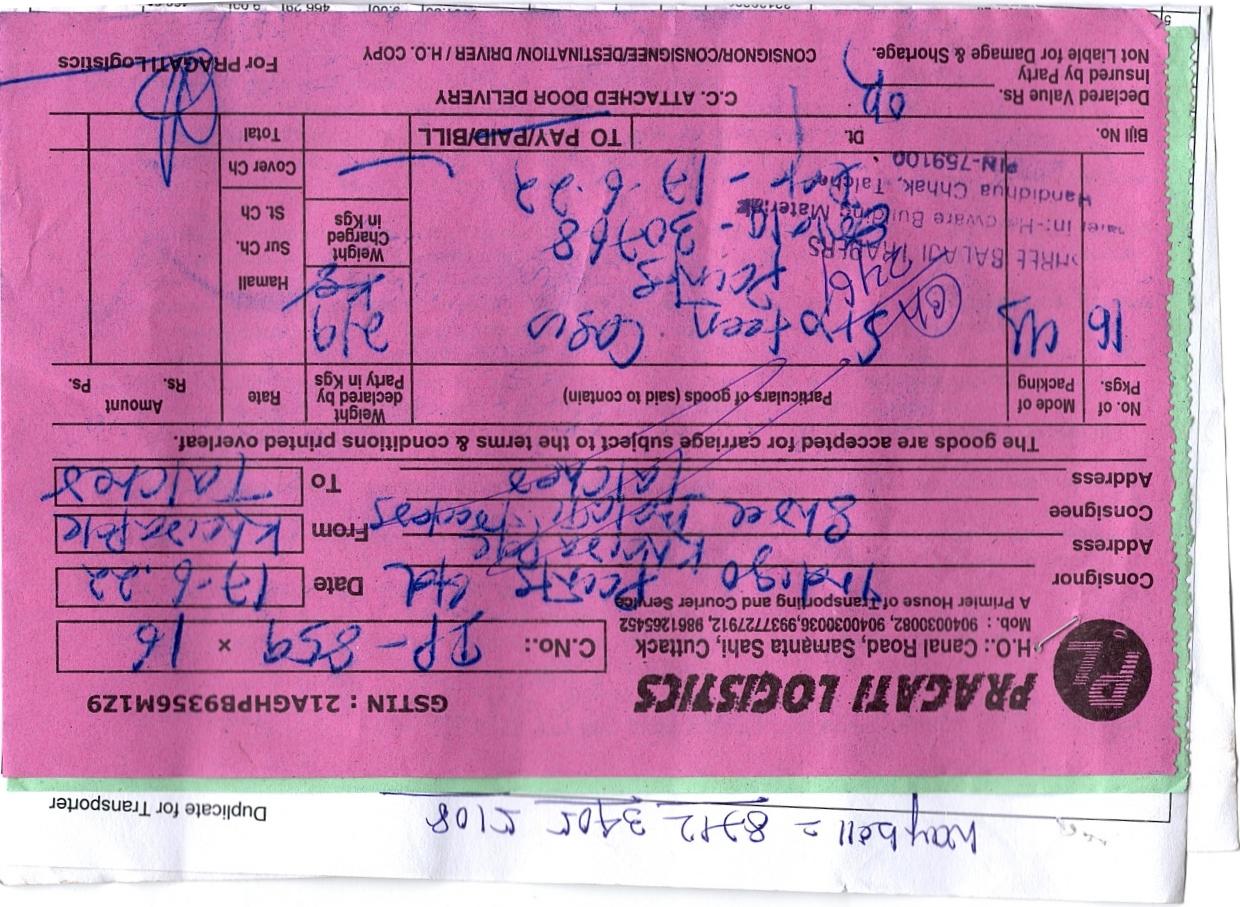 Duplicate for Transporter
Waybill = 8712 3405 5108
PRAGATI LOGISTICS
GSTIN : 21AGHPB9356M1Z9
H.O.: Canal Road, Samanta Sahi, Cuttack
Mob.: 9040030082, 9040030036, 9937727912, 9861265452
A Primier House of Transporting and Courier Service
C.No.: PP-859 × 16
Consignor Indigo Paints Ltd
Date 17-6.22
Address Khorapole
From Khorapole
Consignee Shree Balaji Traders
Address Talcher
To Talcher
The goods are accepted for carriage subject to the terms & conditions printed overleaf.
No. of Pkgs.
Mode of Packing
Particulars of goods (said to contain)
Weight declared by Party in Kgs
Rate
Amount
Rs. Ps.
16
Sixteen Cases
Paints
219 Kg
30768
17-6.22
Hamali
Sur Ch.
St. Ch
Cover Ch
Total
Weight Charged in Kgs
SHREE BALAJI TRADERS
Handidhua Chhak, Talcher
PIN-759100
Bill No.
Dt.
TO PAY/PAID/BILL
C.C. ATTACHED DOOR DELIVERY
Declared Value Rs.
Insured by Party
Not Liable for Damage & Shortage.
CONSIGNOR/CONSIGNEE/DESTINATION/ DRIVER / H.O. COPY
For PRAGATI Logistics